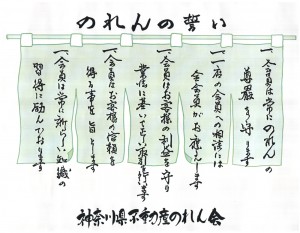 のれんの誓い
一、会員は常にのれんの
尊厳を守ります
一、一店の会員への相談には
全会員がお応えします
一、会員はお客様の利益を守り
業法に基いて正しい取引を行います
一、会員はお客様の信頼を
得る事を旨とします
一、会員は常に新らしい知識の
習得に励んでおります
神奈川県不動産のれん会